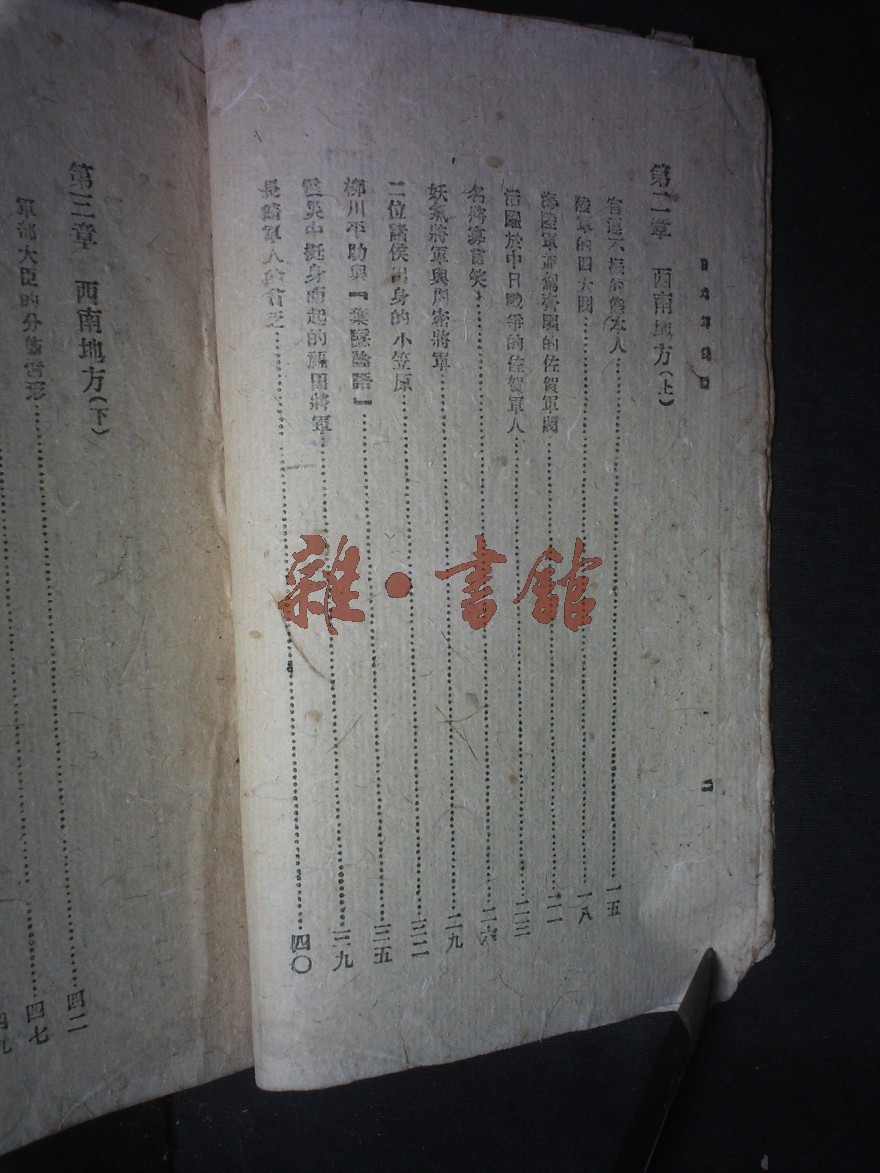 第二章 西南地方（上）
官運不振的熊本人……一五
陸軍的四大閥……一八
海陸軍並駕齊驅的佐賀軍閥……二一
活躍於中日戰爭的佐賀軍人……二三
名將寡言笑……二六
妖氣將軍與周密將軍……二九
二位諸侯出身的小笠原……三二
柳川平助與『葉隱論語』……三五
挺身而起的福岡將軍……三九
長崎軍人的貧乏……四〇
二
第三章 西南地方（下）……四二
軍部大臣的分……形……四七
四九
雜·書館